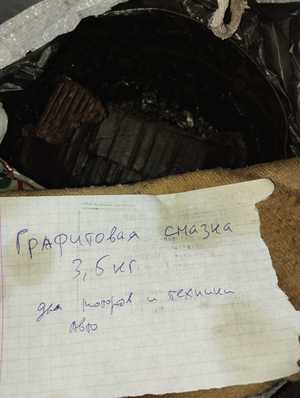 Графитовая смазка
3,5 кг
для моторов и техники
Авто